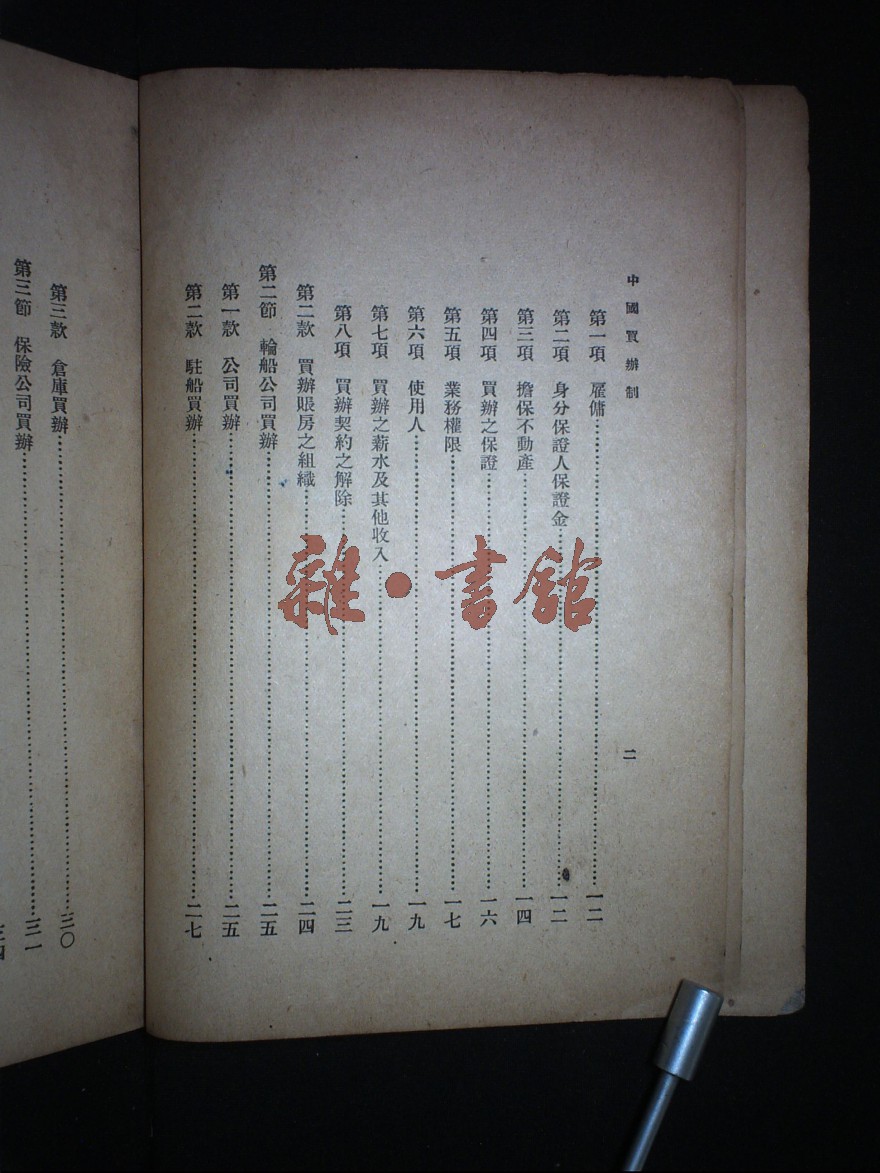 中國買辦制
二
第一項 雇傭……一二
第二項 身分保證人保證金……一二
第三項 擔保不動產……一四
第四項 買辦之保證……一六
第五項 業務權限……一七
第六項 使用人……一九
第七項 買辦之薪水及其他收入……一九
第八項 買辦契約之解除……二三
第二款 買辦賬房之組織……二四
第二節 輪船公司買辦……二五
第一款 公司買辦……二五
第二款 駐船買辦……二七
第三款 倉庫買辦……三〇
第三節 保險公司買辦……三一
雜·書館